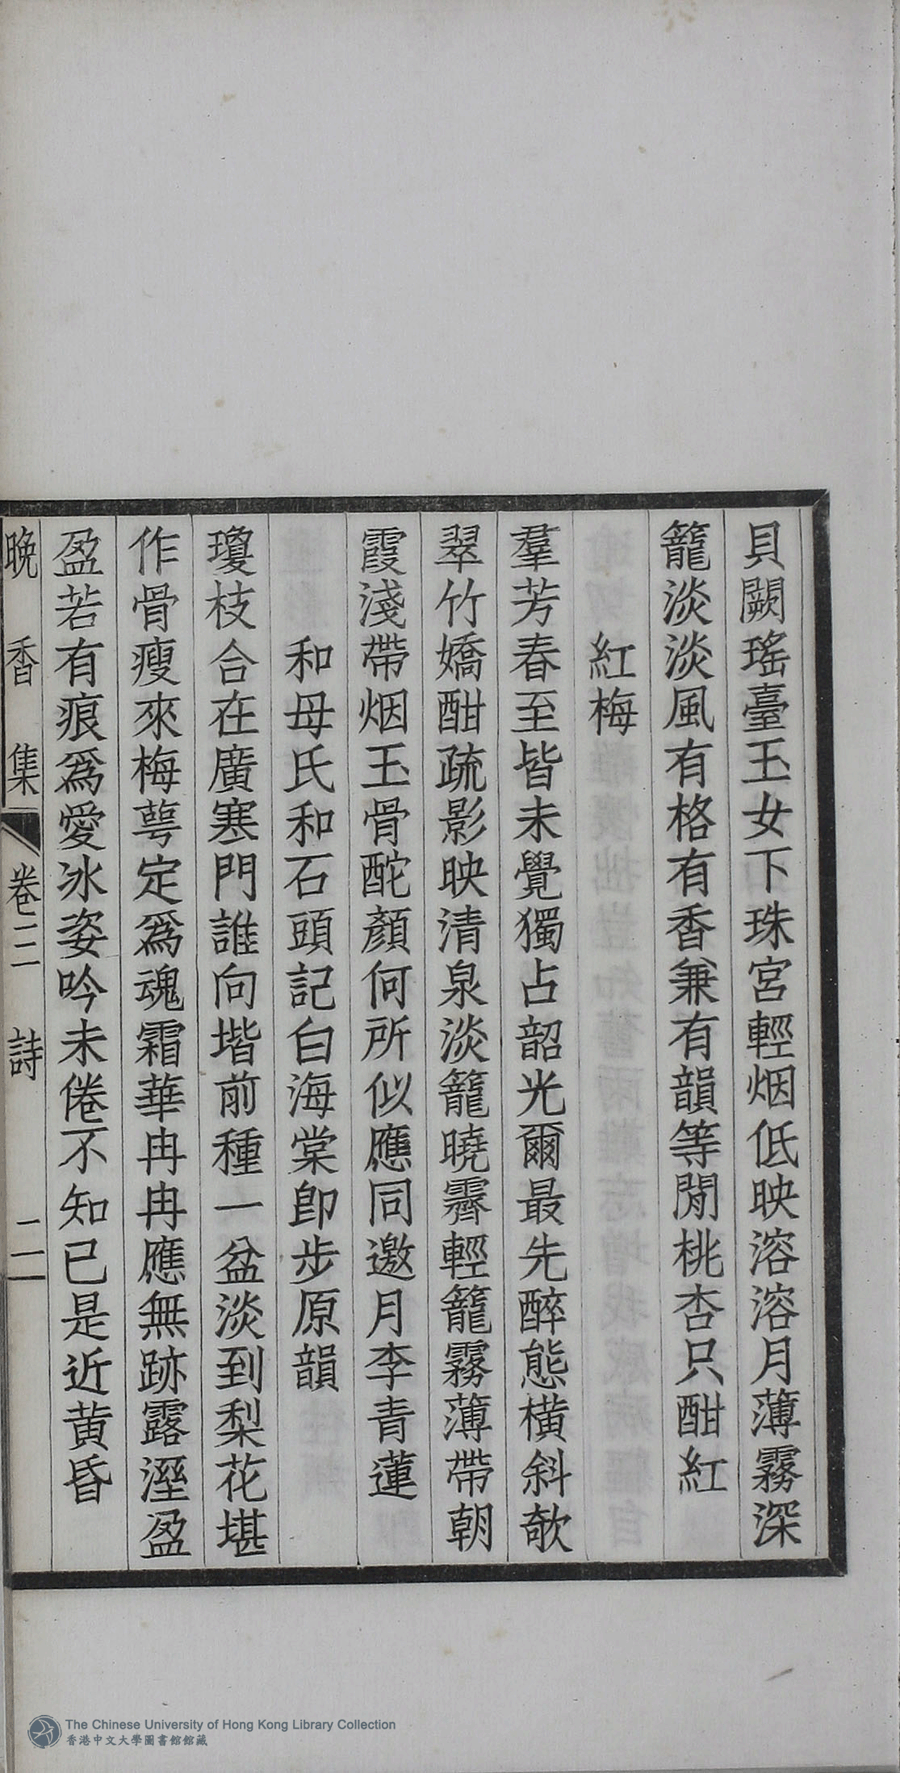 貝闕瑤臺玉女下珠宮輕烟低映溶溶月薄霧深
籠淡淡風有格有香兼有韻等閒桃杏只酣紅
紅梅
羣芳春至皆未覺獨占韶光爾最先醉態橫斜欹
翠竹嬌酣疏影映清泉淡籠曉霽輕籠霧薄帶朝
霞淺帶烟玉骨酡顏何所似應同邀月李青蓮
和母氏和石頭記白海棠即步原韻
瓊枝合在廣寒門誰向堦前種一盆淡到梨花堪
作骨瘦來梅萼定爲魂霜華冉冉應無跡露溼盈
盈若有痕爲愛冰姿吟未倦不知已是近黃昏
晚香集 卷三 詩 二
The Chinese University of Hong Kong Library Collection
香港中文大學圖書館館藏